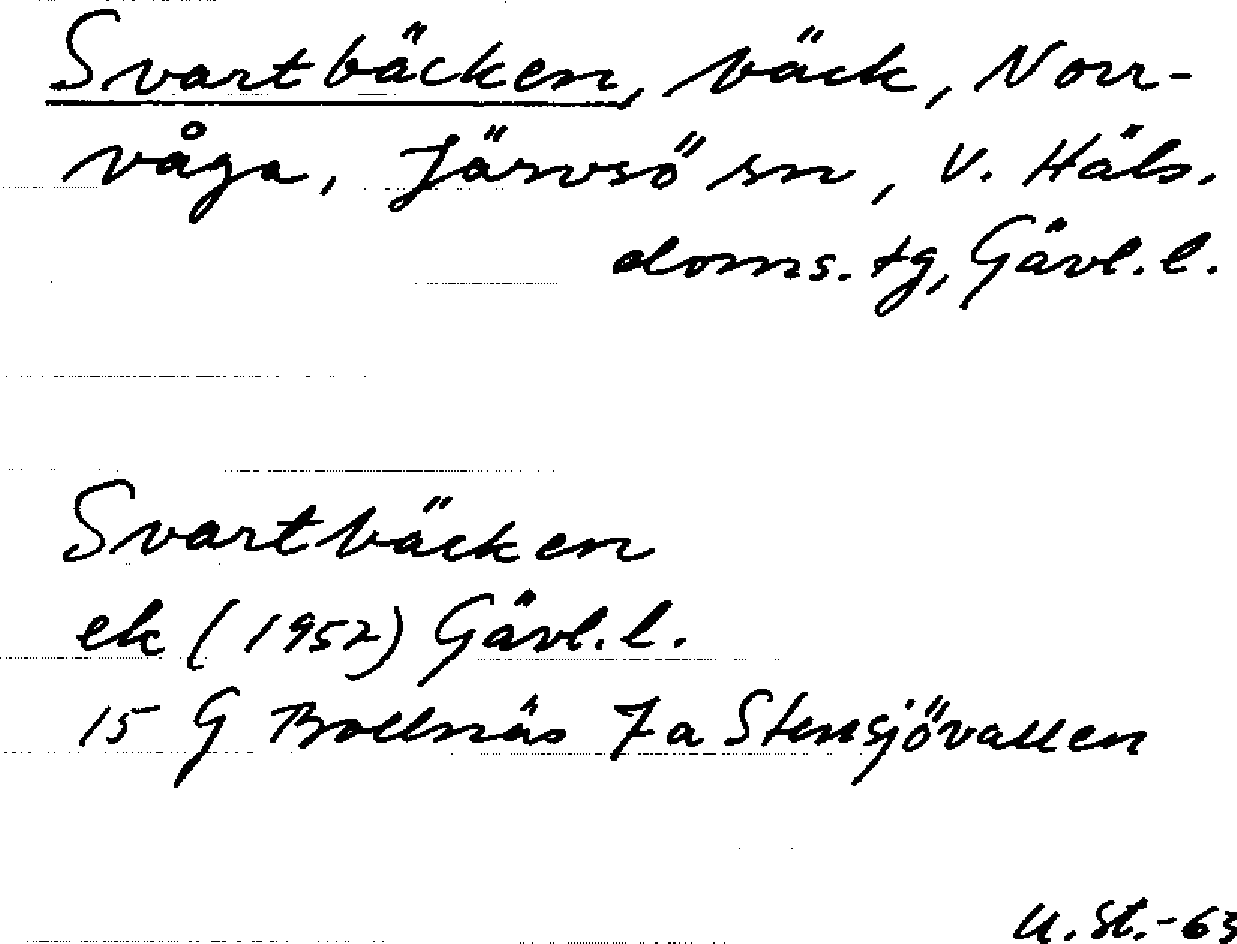 Svartbäcken, bäck, Norr-
våga, Järvsö sn, V. Häls.
doms. tg, Gävl. l.
Svartbäcken
ek (1952) Gävl. l.
15 G Bollnäs 7 a Stensjövallen
U. St. -63